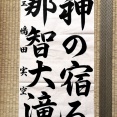 神の宿る
那智大滝
三 嶋田実空